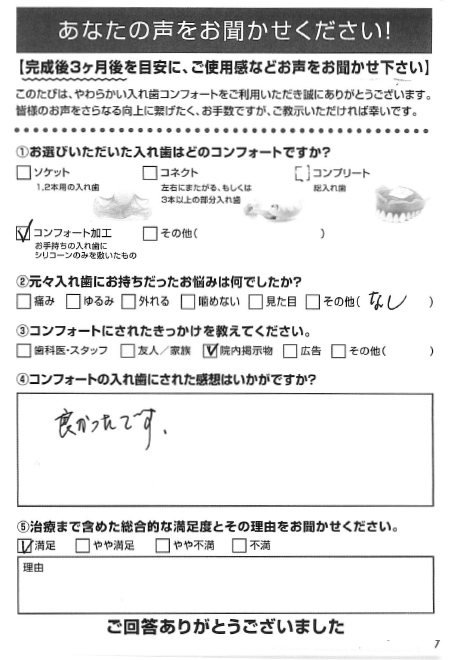 あなたの声をお聞かせください!
【完成後3ヶ月後を目安に、ご使用感などお声をお聞かせ下さい】
このたびは、やわらかい入れ歯コンフォートをご利用いただき誠にありがとうございます。
皆様のお声をさらなる向上に繋げたく、お手数ですが、ご教示いただければ幸いです。
①お選びいただいた入れ歯はどのコンフォートですか?
□ソケット □コネクト □コンプリート
1,2本用の入れ歯 左右にまたがる、もしくは 総入れ歯
3本以上の部分入れ歯
☑コンフォート加工 □その他( )
お手持ちの入れ歯に
シリコーンのみを敷いたもの
②元々入れ歯にお持ちだったお悩みは何でしたか?
□痛み □ゆるみ □外れる □噛めない □見た目 □その他(なし )
③コンフォートにされたきっかけを教えてください。
□歯科医・スタッフ □友人/家族 ☑院内掲示物 □広告 □その他( )
④コンフォートの入れ歯にされた感想はいかがですか?
良かったです.
⑤治療まで含めた総合的な満足度とその理由をお聞かせください。
☑満足 □やや満足 □やや不満 □不満
理由
ご回答ありがとうございました
7